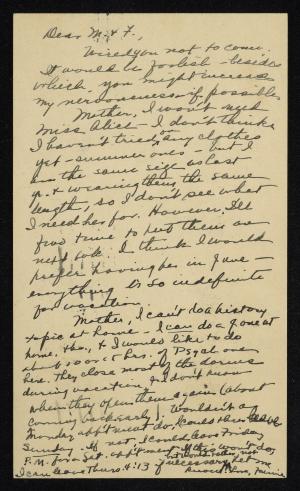 Dear M. & F.,
Wired you not to come.
It would be foolish - besides
which, you might increase
my nervousness if possible.
Mother, I won't need
Miss Alice - I don't think.
I haven't tried on any clothes
yet - summer ones - but I
am the same size as last
yr. & wearing them the same
length, so I don't see what
I need her for. However, I'll
find time to put them on
next wk. I think I would
prefer having her in June -
everything is so indefinite
for vacation.
Mother, I can't do a history
topic at home - I can do a Zone at
home, tho, & I would like to do
about 10 or 15 hrs. of Psych. one
here. They close most of the dorms
during vacation, & I don't know
when they open them again (about
coming back early). Wouldn't a
Monday app't meat do? Could then leave
Sunday. If not, I could leave Friday
P.M. for a Sat. app't ment. If this won't do,
I can leave Thurs. 4:13 if necessary, but
would rather not
love,